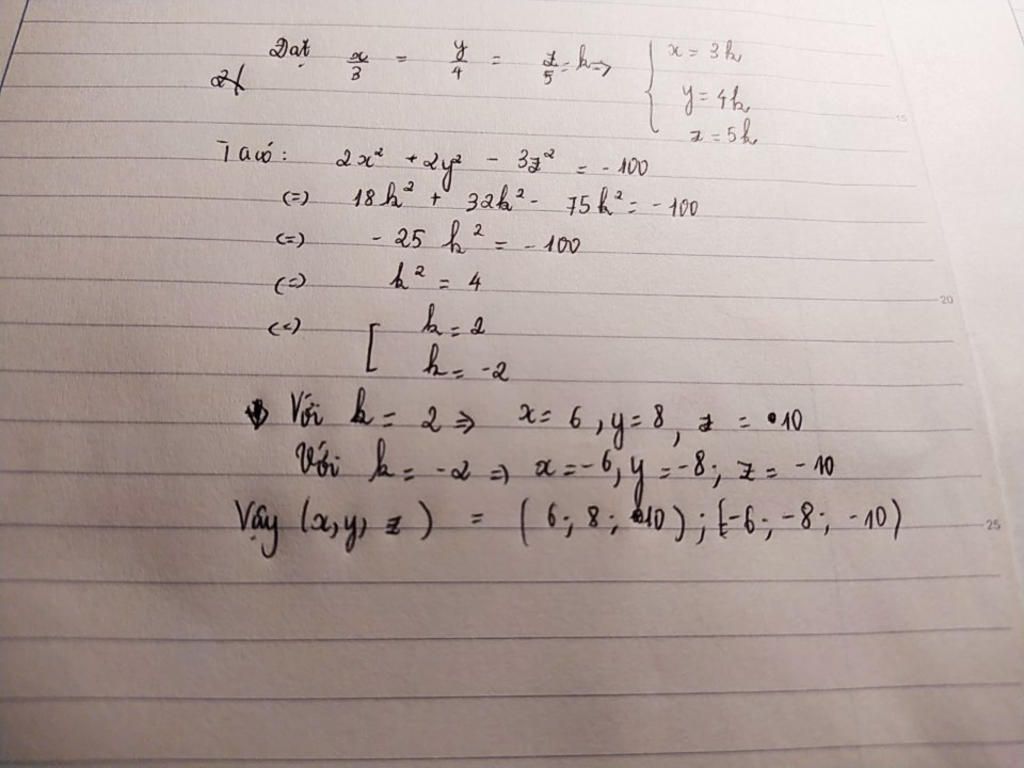 Đặt x/3 = y/4 = z/5 = k => { x = 3k
2/ y = 4k
z = 5k
15
Ta có: 2x² + 2y² - 3z² = -100
(=) 18k² + 32k² - 75k² = -100
(=) -25 k² = -100
(=) k² = 4
20
(=) [ k = 2
k = -2
Với k = 2 => x = 6, y = 8, z = 10
Với k = -2 => x = -6, y = -8; z = -10
Vậy (x, y, z) = (6; 8; 10); (-6; -8; -10)
25